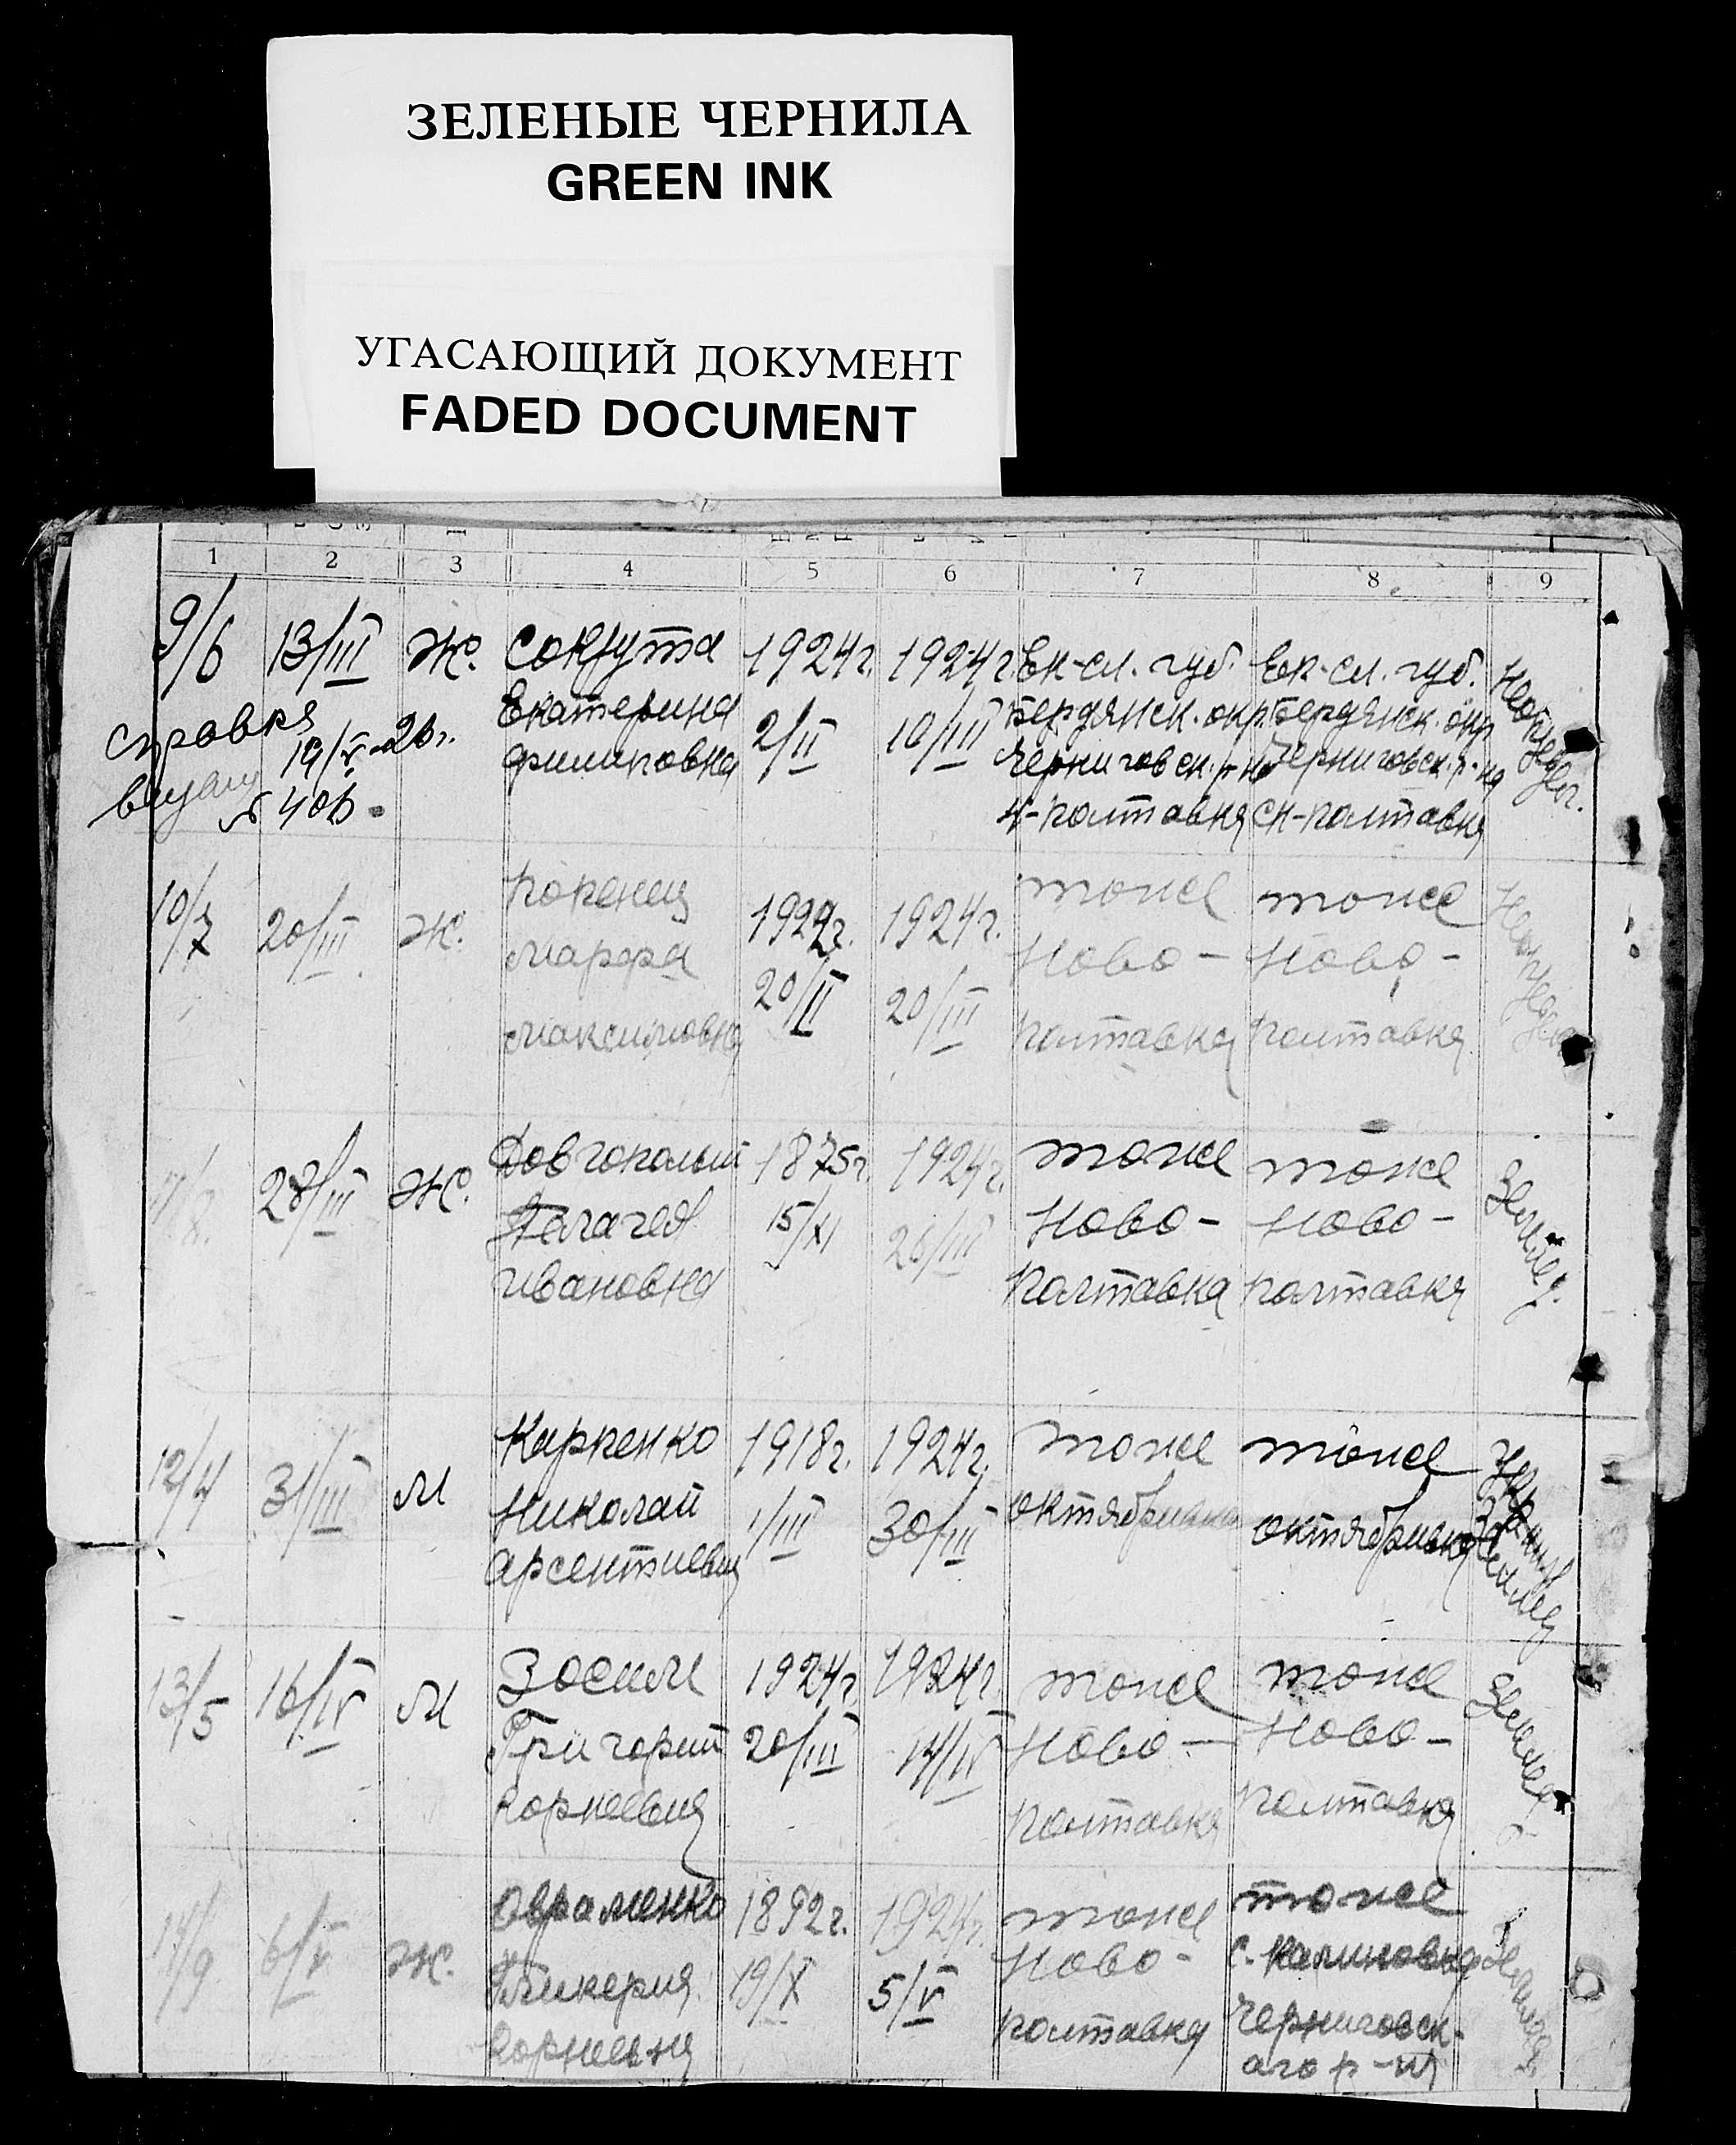 ЗЕЛЕНЫЕ ЧЕРНИЛА
GREEN INK
УГАСАЮЩИЙ ДОКУМЕНТ
FADED DOCUMENT
1 2 3 4 5 6 7 8 9
9/6 13/III Ж. Сокрута 1924г. 1924г. Ек-сл. губ. Ек-сл. губ.
Екатерина 2/II 10/III Бердянск. окр. Бердянск. окр
Филиповна Черниговск. р-на Черниговск. р-на
Н-Полтавка с Н-Полтавка
справка
19/V-26г.
№ 406
10/7 20/III Ж. Коренец 1924г. 1924г. тоже тоже
Марфа 20/II 20/III Ново- Ново-
Максимовна Полтавка Полтавка
28/III Ж. Довгополый 1875г. 1924г. тоже тоже
Пелагея 15/XI 26/III Ново- Ново-
Ивановна Полтавка Полтавка
12/4 31/III М Карпенко 1918г. 1924г. тоже тоже
Николай 1/III 30/III Октябриевка Октябриевка
Арсентиевич
13/5 16/IV М Зосим 1924г. 1924г. тоже тоже
Григорий 20/III 14/IV Ново- Ново-
Корнеевич Полтавка Полтавка
14/9 6/V Ж. Авраменко 1892г. 1924г. тоже тоже
Гликерия 19/X 5/V Ново- с. Калиновка
Корнеевна Полтавка Черниговск-
аго р-на